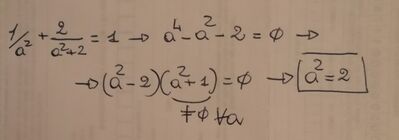 1/a² + 2/(a²+2) = 1 → a⁴ - a² - 2 = ∅ →
→ (a² - 2)(a² + 1) = ∅ → a² = 2
≠ ∅ ∀a